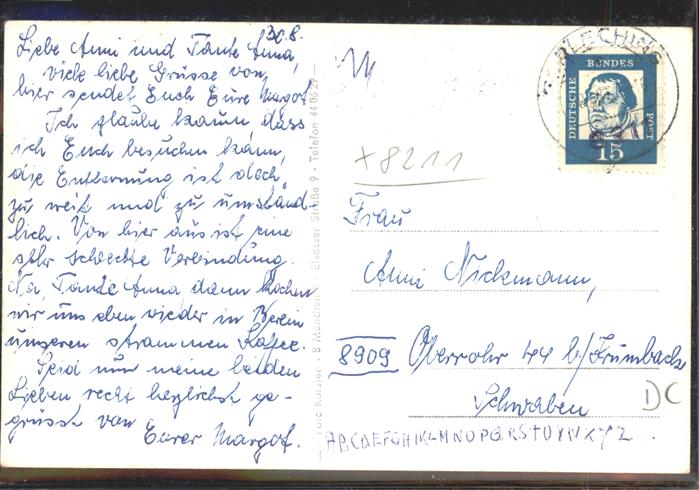 30.8.
Liebe Anni und Tante Anna,
viele liebe Grüsse von
hier sendet Euch Eure Margot.
Ich glaube kaum dass
ich Euch besuchen kann,
die Entfernung ist doch
zu weit und zu umständ-
lich. Von hier aus ist eine
sehr schlechte Verbindung.
Na Tante Anna dann kochen
wir uns eben wieder in Berlin
unseren strammen Kaffee.
Seid nun meine beiden
Lieben recht herzlichst ge-
grüsst von
Eurer Margot.
8 München Elsässer Straße 9 · Telefon 44 06 27
DEUTSCHE BUNDES POST
15
+8211
Frau
Anni Nickmann,
8909 Oberrohr 44 b/Krumbach
Schwaben
DC
ABCDEFGHIKLMNOPQRSTUVWXYZ